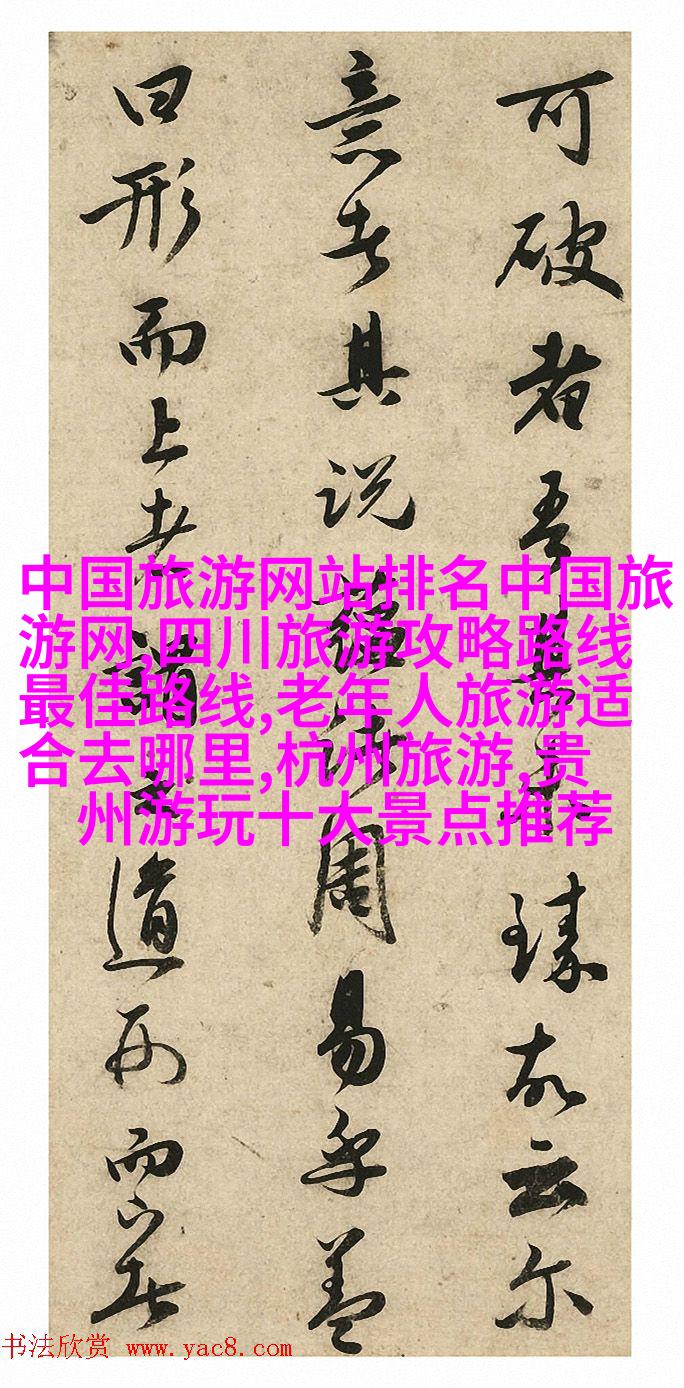 可破者吾
臻故云尔
意者其说
周易乎盖
曰形而上者谓之道形而下者
中国旅游网站排名中国旅
游网,四川旅游攻略路线
最佳路线,老年人旅游适
合去哪里,杭州旅游,贵
州游玩十大景点推荐
书法欣赏 www.yac8.com